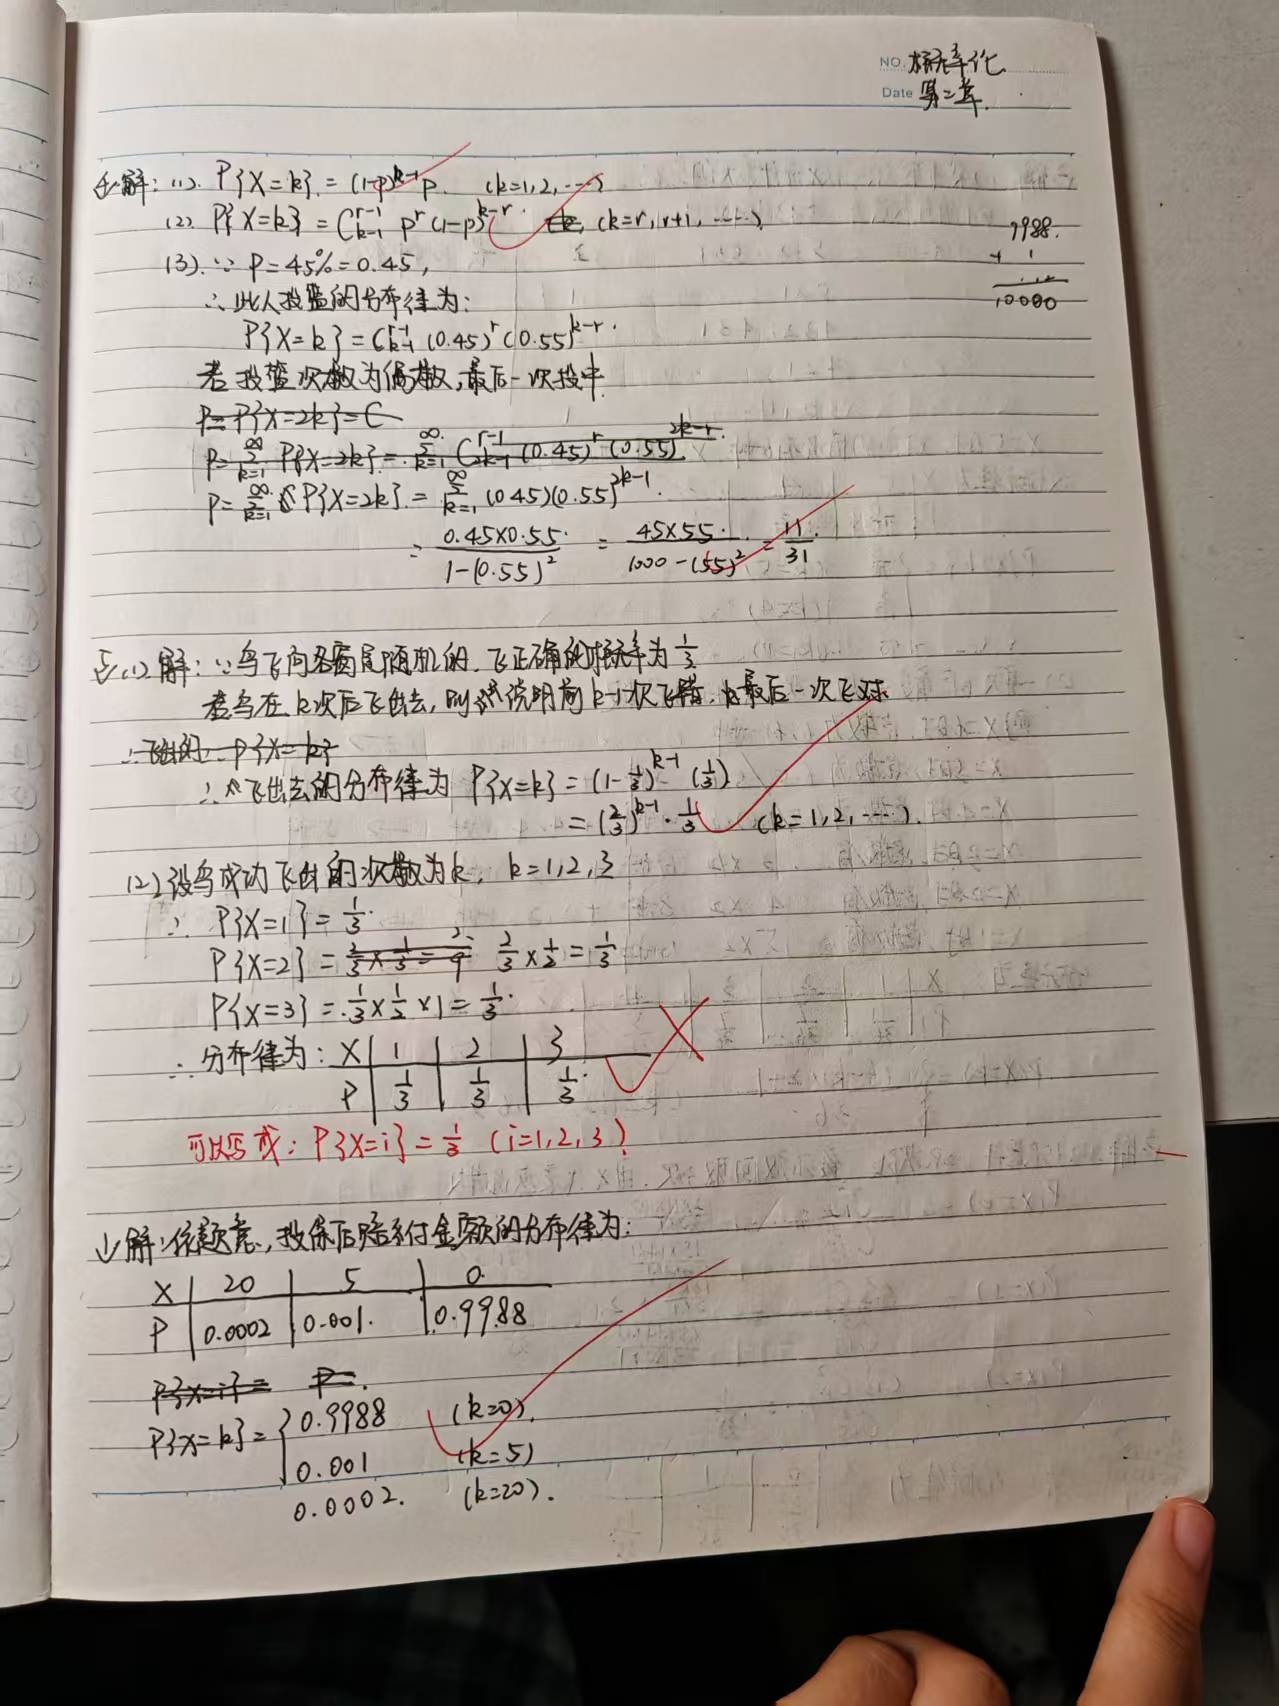 NO. 概率论
Date 第二章.
4.解:(1). P{X=k}=(1-p)^{k-1}p. (k=1,2,…)
(2). P{X=k}=C_{k-1}^{r-1} p^r (1-p)^{k-r}. (k=r,r+1,……)
9988.
+ 1
10000
(3).∵P=45%=0.45,
∴此人投篮的分布律为:
P{X=k}=C_{k-1}^{r-1}(0.45)^r(0.55)^{k-r}.
若投篮次数为偶数,最后一次投中
P=P{X=2k}=C
P=∑_{k=1}^{∞} P{X=2k}.=∑_{k=1}^{∞} C_{2k-1}^{r-1}(0.45)^r(0.55)^{2k-r}.
P=∑_{k=1}^{∞} P{X=2k}.=∑_{k=1}^{∞}(0.45)(0.55)^{2k-1}.
=\frac{0.45×0.55}{1-(0.55)^2} = \frac{45×55}{1000-(55)^2} = \frac{11}{31}.
5.(1)解:∵鸟飞向各窗是随机的.飞正确的概率为1/3
若鸟在k次后飞出去,则说明前k-1次飞错,最后一次飞对.
∴飞出的∴P{X=k}
∴飞出去的分布律为 P{X=k}=(1-1/3)^{k-1}(1/3)
=(2/3)^{k-1}·1/3 (k=1,2,……).
(2)设鸟成功飞出的次数为k, k=1,2,3
∴ P{X=1}=1/3.
P{X=2}=2/3×1/3=2/9 2/3×1/2=1/3
P{X=3}=1/3×1/2×1=1/3.
∴分布律为: X | 1 | 2 | 3
P | 1/3 | 1/3 | 1/3.
可以写成: P{X=i}=1/3 (i=1,2,3)
1.解:依题意,投保后赔付金额的分布律为:
X | 20 | 5 | 0.
P | 0.0002 | 0.001. | 0.9988
P{X=i}= P=.
P{X=k}={0.9988 (k=0).
0.001 (k=5)
0.0002. (k=20).